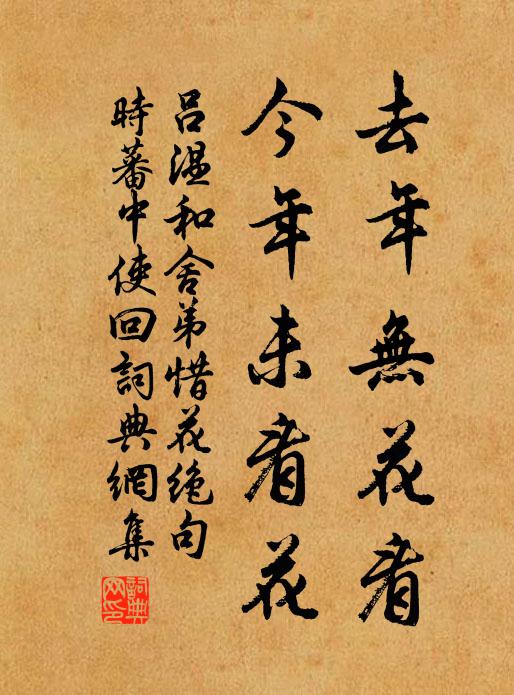 去年無花看
今年未看花
呂溫和舍弟惜花絕句
時蕃中使回詞典網集
詞典網印